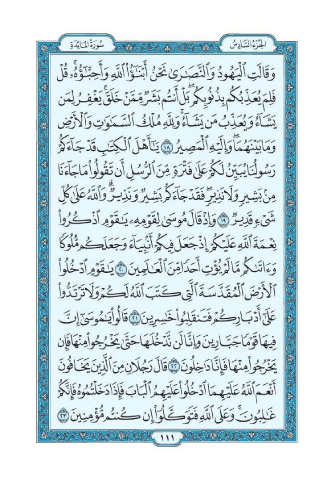 الجزء السادس
سورة المائدة
وَقَالَتِ ٱلۡيَهُودُ وَٱلنَّصَٰرَىٰ نَحۡنُ أَبۡنَٰٓؤُاْ ٱللَّهِ وَأَحِبَّٰٓؤُهُۥۚ قُلۡ
فَلِمَ يُعَذِّبُكُم بِذُنُوبِكُمۖ بَلۡ أَنتُم بَشَرٞ مِّمَّنۡ خَلَقَۚ يَغۡفِرُ لِمَن
يَشَآءُ وَيُعَذِّبُ مَن يَشَآءُۚ وَلِلَّهِ مُلۡكُ ٱلسَّمَٰوَٰتِ وَٱلۡأَرۡضِ
وَمَا بَيۡنَهُمَاۖ وَإِلَيۡهِ ٱلۡمَصِيرُ ١٨ يَٰٓأَهۡلَ ٱلۡكِتَٰبِ قَدۡ جَآءَكُمۡ
رَسُولُنَا يُبَيِّنُ لَكُمۡ عَلَىٰ فَتۡرَةٖ مِّنَ ٱلرُّسُلِ أَن تَقُولُواْ مَا جَآءَنَا
مِنۢ بَشِيرٖ وَلَا نَذِيرٖۖ فَقَدۡ جَآءَكُم بَشِيرٞ وَنَذِيرٞۗ وَٱللَّهُ عَلَىٰ كُلِّ
شَيۡءٖ قَدِيرٞ ١٩ وَإِذۡ قَالَ مُوسَىٰ لِقَوۡمِهِۦ يَٰقَوۡمِ ٱذۡكُرُواْ
نِعۡمَةَ ٱللَّهِ عَلَيۡكُمۡ إِذۡ جَعَلَ فِيكُمۡ أَنۢبِيَآءَ وَجَعَلَكُم مُّلُوكٗا
وَءَاتَىٰكُم مَّا لَمۡ يُؤۡتِ أَحَدٗا مِّنَ ٱلۡعَٰلَمِينَ ٢٠ يَٰقَوۡمِ ٱدۡخُلُواْ
ٱلۡأَرۡضَ ٱلۡمُقَدَّسَةَ ٱلَّتِي كَتَبَ ٱللَّهُ لَكُمۡ وَلَا تَرۡتَدُّواْ
عَلَىٰٓ أَدۡبَارِكُمۡ فَتَنقَلِبُواْ خَٰسِرِينَ ٢١ قَالُواْ يَٰمُوسَىٰٓ إِنَّ
فِيهَا قَوۡمٗا جَبَّارِينَ وَإِنَّا لَن نَّدۡخُلَهَا حَتَّىٰ يَخۡرُجُواْ مِنۡهَا فَإِن
يَخۡرُجُواْ مِنۡهَا فَإِنَّا دَٰخِلُونَ ٢٢ قَالَ رَجُلَانِ مِنَ ٱلَّذِينَ يَخَافُونَ
أَنۡعَمَ ٱللَّهُ عَلَيۡهِمَا ٱدۡخُلُواْ عَلَيۡهِمُ ٱلۡبَابَ فَإِذَا دَخَلۡتُمُوهُ فَإِنَّكُمۡ
غَٰلِبُونَۚ وَعَلَى ٱللَّهِ فَتَوَكَّلُوٓاْ إِن كُنتُم مُّؤۡمِنِينَ ٢٣
١١١